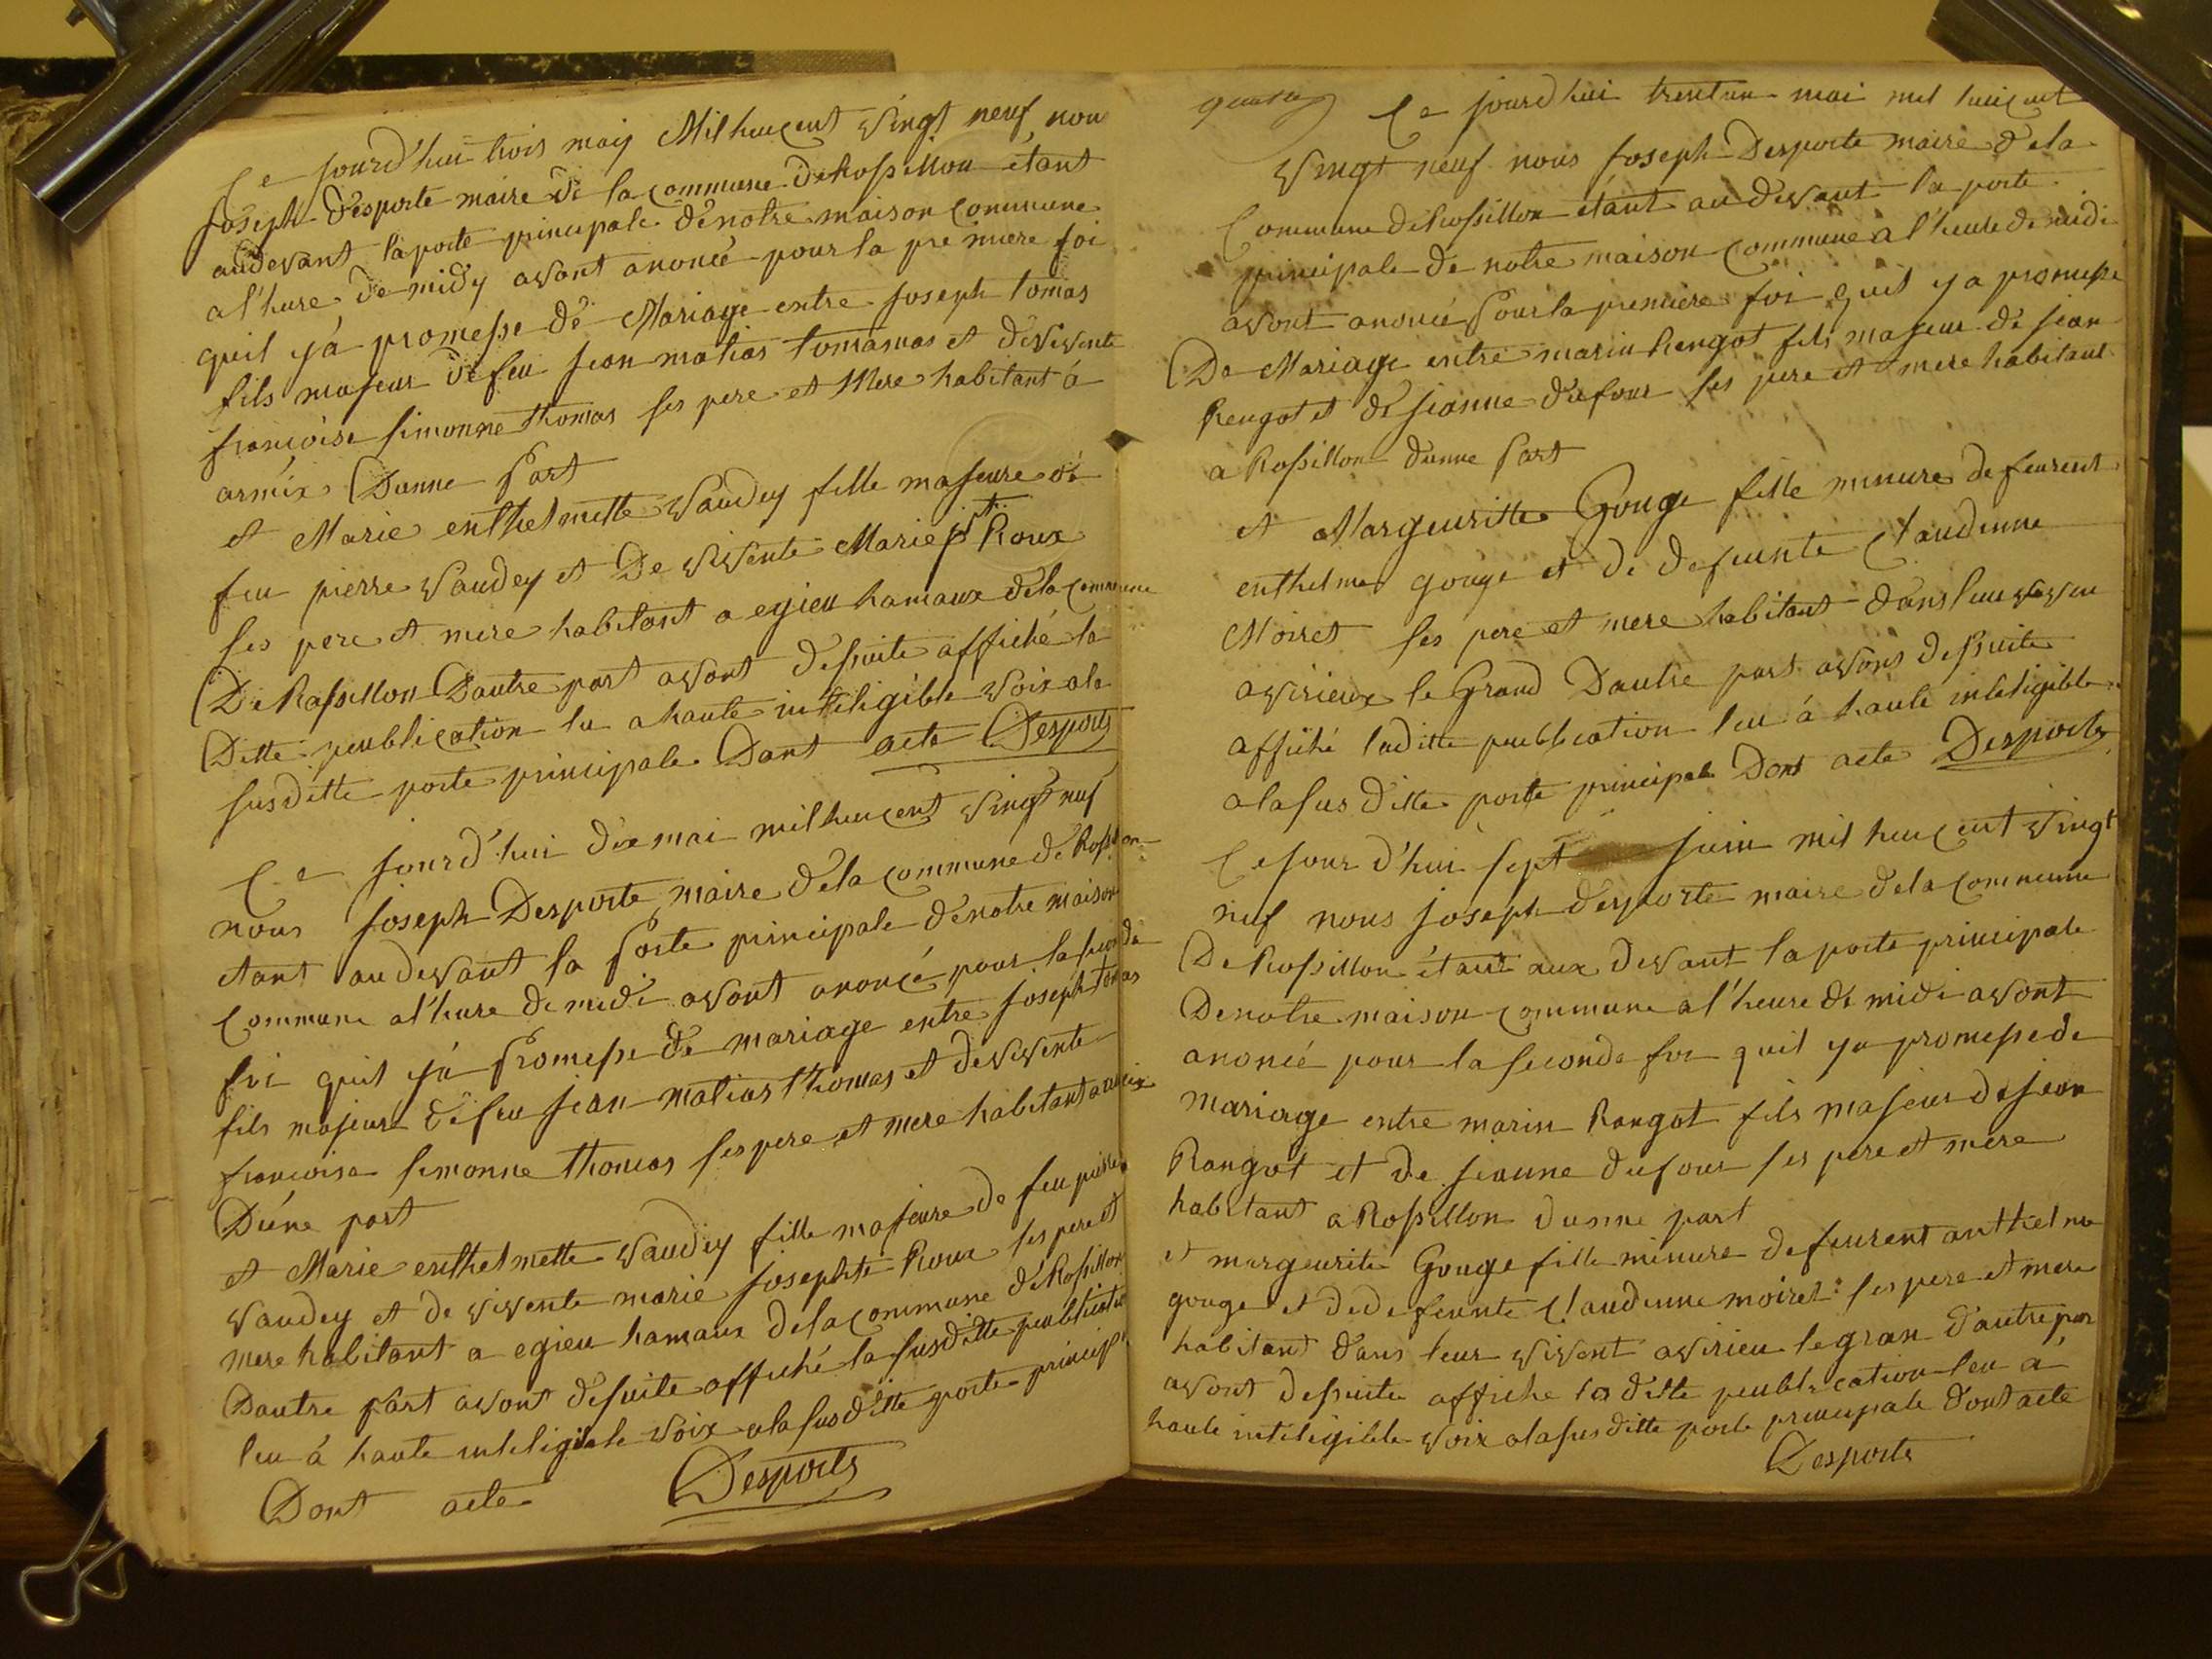 Ce jourd'hui trois maij Mil huicent vingt neuf nou
joseph Desporte maire de la commune de Rossillon étant
audevant la porte principale de notre maison commune
a l'hure de midy avont anoncé pour la premiere foi
quil ya promesse de Mariage entre joseph tomas
fils majeur de feu jean matias tomas et de vivente
françoise simonne thomas ses pere et Mere habitant à
armix Dunne part
et Marie enthelmette Vaudey fille majeure de
feu pierre Vaudey et De vivente Marie jpte Roux
ses pere et mere habitant a egieu hamaux de la commune
De Rassillon Dautre part avont desuite affiché la
Ditte peublication lu a haute inteligible voix a la
susditte porte principale Dont acte Desporte
Ce jourd'hui dix mai mil huicent vingt neuf
nous joseph Desporte maire de la commune de Rossillon
etant audevant la porte principale de notre maison
commune a l'hure de midi avont anoncé pour la seconde
foi quil ya promesse de mariage entre joseph tomas
fils majeur de feu jean matias thomas et de vivente
françoise simonne thomas ses pere et mere habitant armix
D'une part
et Marie enthelmette Vaudey fille majeure de feu pierre
Vaudey et de vivente marie josephte Roux ses pere et
mere habitant a egieu hamaux de la commune de Rossillon
Dautre part avont desuite affiché la susditte peublication
leu à haute inteligible voix a la susditte porte principa
Dont acte Desporte
Ce jourd'hui trentun mai mil huicent
vingt neuf nous joseph Desporte maire de la
Commune de Rossillon étant au devant la porte
principale de notre maison commune a l'heure de midi
avont anoncé pour la premiere foi quil ya promesse
De Mariage entre marin Rengot fils majeur de jean
Rengot et de jeanne dufour ses pere et mere habitant
a Rossillon dunne part
et Margeuritte Gouge fille minure de feurent
enthelme gouge et de defeunte Claudenne
Moiret ses pere et mere habitant dans leur viven
a virieux le Grand Dautre part avons desuite
affiché laditte peublication leu à haute inteligible
a la sus ditte porte principale Dont acte Desporte
Ce jour d'hui sept juin mil huicent vingt
neuf nous joseph desporte maire de la commune
De Rossillon étant aux devant la porte principale
De notre maison commune a l'heure de midi avont
anoncé pour la seconde foi quil ya promesse de
mariage entre marin Rangot fils majeur de jean
Rangot et de jeanne dufour ses pere et mere
habitant a Rossillon dunne part
et margeurite Gouge fille minure de feurent anthelme
gouge et de defeunte Claudenne moiret : ses pere et mere
habitant dans leur vivent a virieu le gran d'autre par
avont desuite affiché la ditte peublication leu à
haute inteligible voix a la sus ditte porte principale dont acte
Desporte